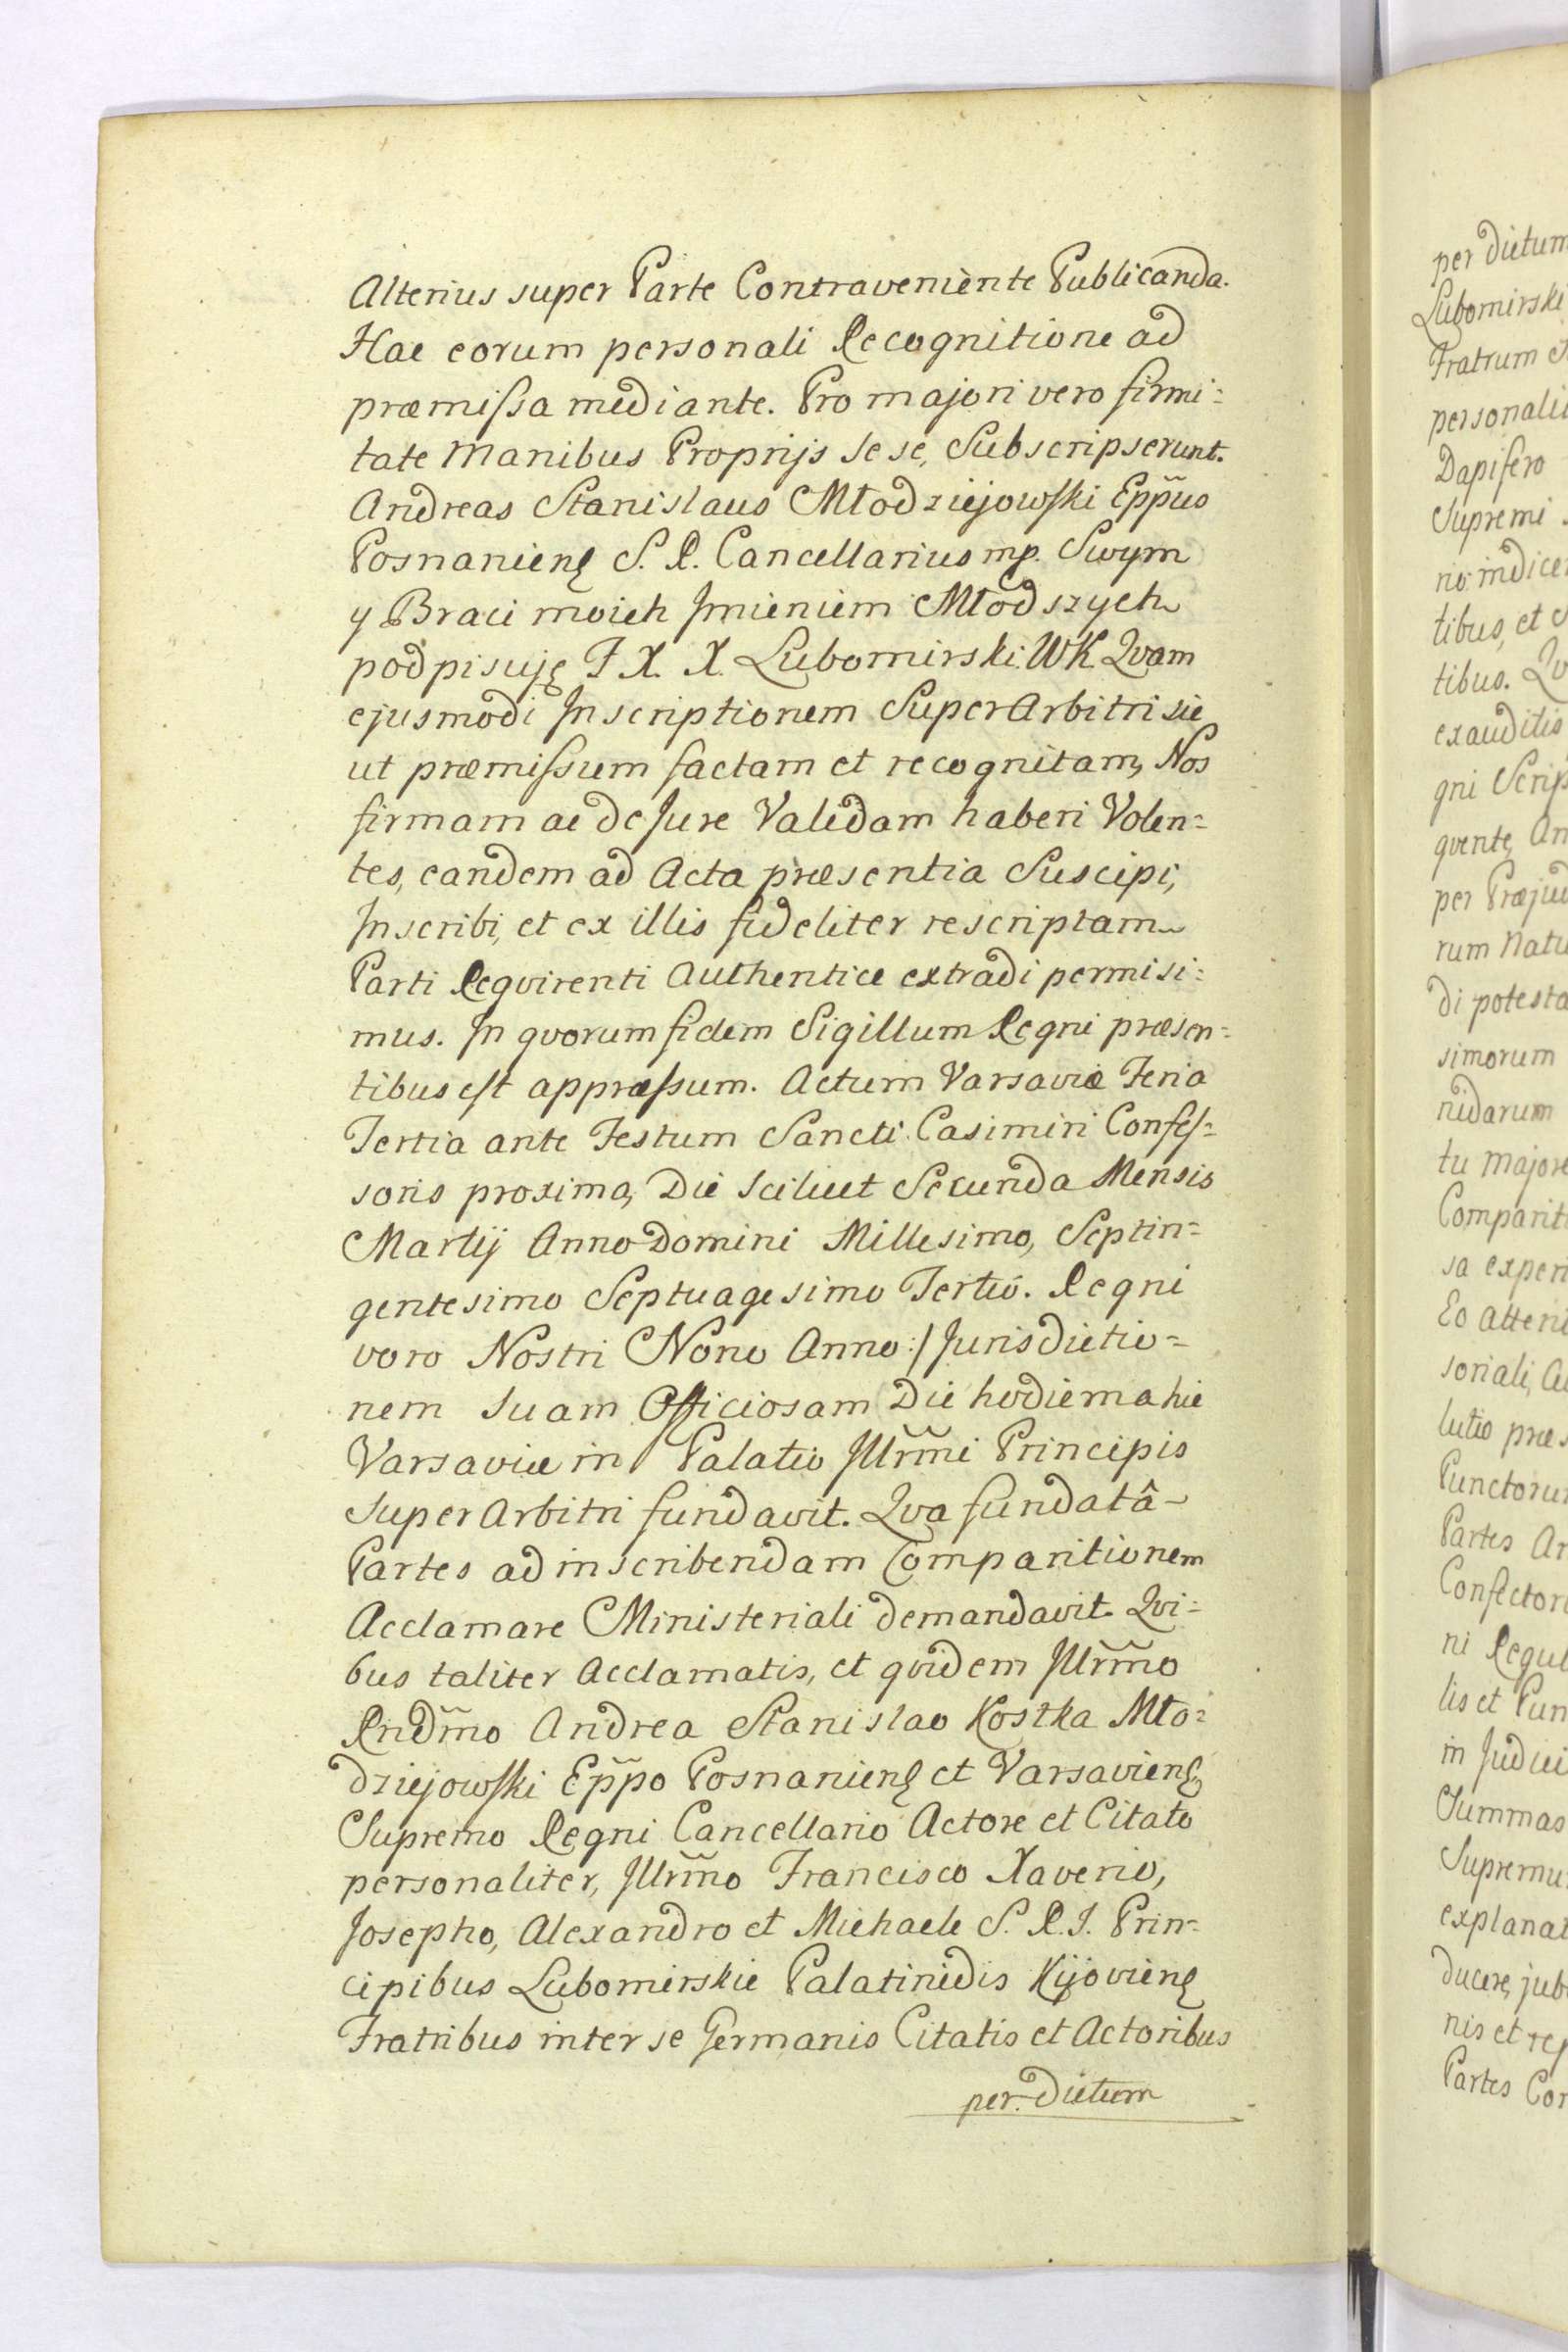 Alterius super Parte Contraveniente Publicanda.
Hac eorum personali Recognitione ad
præmissa mediante. Pro majori vero firmi=
tate Manibus Proprijs se se, Subscripserunt.
Andreas Stanislaus Młodziejowski Epp̃us
Posnanienꝭ S. R. Cancellarius mp. Swym
y Braci moich Jmieniem Młodszych
podpisuję F X. X. Lubomirski WK Qvam
ejusmodi Jnscriptionem SuperArbitri sic
ut præmissum factam et recognitam, Nos
firmam ac de Jure Validam haberi Volen=
tes, eandem ad Acta præsentia Suscipi,
Jnscribi, et ex illis fideliter rescriptam
Parti Reqvirenti Authentice extradi permisi=
mus. Jn qvorum fidem Sigillum Regni præsen=
tibus est appræssum. Actum Varsaviæ Feria
Tertia ante Festum Sancti Casimiri Confes=
soris proxima, Die scilicet Secunda Mensis
Martij Anno Domini Millesimo, Septin=
gentesimo Septuagesimo Tertio. Regni
voro Nostri Nono Anno:/ Jurisdictio=
nem suam Officiosam Die hodierna hic
Varsaviæ in Palatio Jllrm̃i Principis
SuperArbitri fundavit. Qva fundatâ
Partes ad inscribendam Comparitionem
Acclamare Ministeriali demandavit. Qvi=
bus taliter Acclamatis, et qvidem Jllrm̃o
Rndm̃o Andrea Stanislao Kostka Mło=
dziejowski Epp̃o Posnanienꝭ et Varsavienꝭ,
Supremo Regni Cancellario Actore et Citato
personaliter, Jllrm̃o Francisco Xaverio,
Josepho, Alexandro et Michaele S. R. J. Prin=
cipibus Lubomirskie Palatinidis Kijovienꝭ
Fratribus inter se Germanis Citatis et Actoribus
per dictum
per dictum
Lubomirski
Fratrum
personali
Dapifero
Supremi
tibus, et
tibus.
exauditis
gni
qvente,
per
rum
di
simorum
nidarum
tu
sa
Eo
lutio
Partes
ni
lis et
in
Summas
nis et
Partes